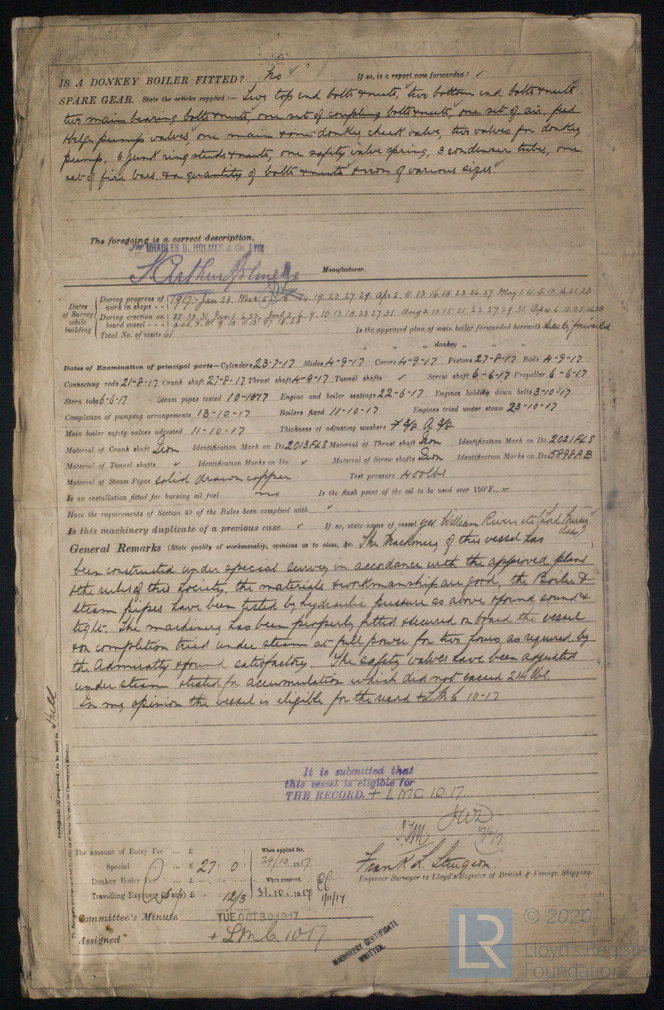 IS A DONKEY BOILER FITTED? No If so, is a report now forwarded?
SPARE GEAR. State the articles supplied:— Two top end bolts & nuts, two bottom end bolts & nuts
two main bearing bolts & nuts, one set of coupling bolts & nuts, one set of air, feed
& bilge pump valves, one main & one donkey check valve, two valves for donkey
pump, 6 junk ring studs & nuts, one safety valve spring, 3 condenser tubes, one
set of fire bars & a quantity of bolts & nuts & iron of various sizes.
The foregoing is a correct description,
For CHARLES D. HOLMES & Co. LTD
Manufacturer.
Dates of Survey while building
During progress of work in shops - - 1917. Jan 23. 19. 23. 27. 29. Apr 2. 11. 13. 16. 18. 23. 26. 27. May 1.
During erection on board vessel - - -
Total No. of visits 61 Is the approved plan of main boiler forwarded herewith
" " " donkey " " "
Dates of Examination of principal parts—Cylinders 23-7-17 Slides 4-9-17 Covers 4-9-17 Pistons 27-8-17 Rods 4-9-17
Connecting rods 21-8-17 Crank shaft 27-8-17 Thrust shaft 4-9-17 Tunnel shafts Screw shaft 6-6-17 Propeller 6-6-17
Stern tube 6-6-17 Steam pipes tested 10-10-17 Engine and boiler seatings 22-6-17 Engines holding down bolts 3-10-17
Completion of pumping arrangements 13-10-17 Boilers fixed 11-10-17 Engines tried under steam 23-10-17
Main boiler safety valves adjusted 11-10-17 Thickness of adjusting washers
Material of Crank shaft Iron Identification Mark on Do. 2013 FLS Material of Thrust shaft Iron Identification Mark on Do. 2021 FLS
Material of Tunnel shafts Identification Marks on Do. Material of Screw shafts Iron Identification Marks on Do. 5898 AB
Material of Steam Pipes solid drawn copper Test pressure 400 lbs
Is an installation fitted for burning oil fuel no Is the flash point of the oil to be used over 150°F.
Have the requirements of Section 49 of the Rules been complied with
Is this machinery duplicate of a previous case If so, state name of vessel yes William Rivers
General Remarks (State quality of workmanship, opinions as to class, &c. The Machinery of this vessel has
been constructed under special survey in accordance with the approved plans
& the rules of this Society, the materials & workmanship are good, the Boiler &
steam pipes have been tested by hydraulic pressure as above & found sound &
tight. The machinery has been properly fitted & secured on board the vessel
& on completion tried under steam at full power for two hours, as required by
the Admiralty & found satisfactory. The safety valves have been adjusted
under steam & tested for accumulation which did not exceed 214 lbs
In my opinion the vessel is eligible for the record + LMC 10-17
Hull
It is submitted that
this vessel is eligible for
THE RECORD. + LMC 10.17.
The amount of Entry Fee ... £ When applied for,
Special ... £ 27 : 0 24/10 1917
Donkey Boiler Fee ... £ When received,
Travelling Expenses £ 12/3 31.10.1917
Frank L Sturgeon.
Engineer Surveyor to Lloyd's Register of British & Foreign Shipping.
Committee's Minute TUE. OCT. 30 1917
Assigned + LMC 10.17
MACHINERY CERTIFICATE
WRITTEN.
© 2020
LR
Lloyd's Register
Foundation